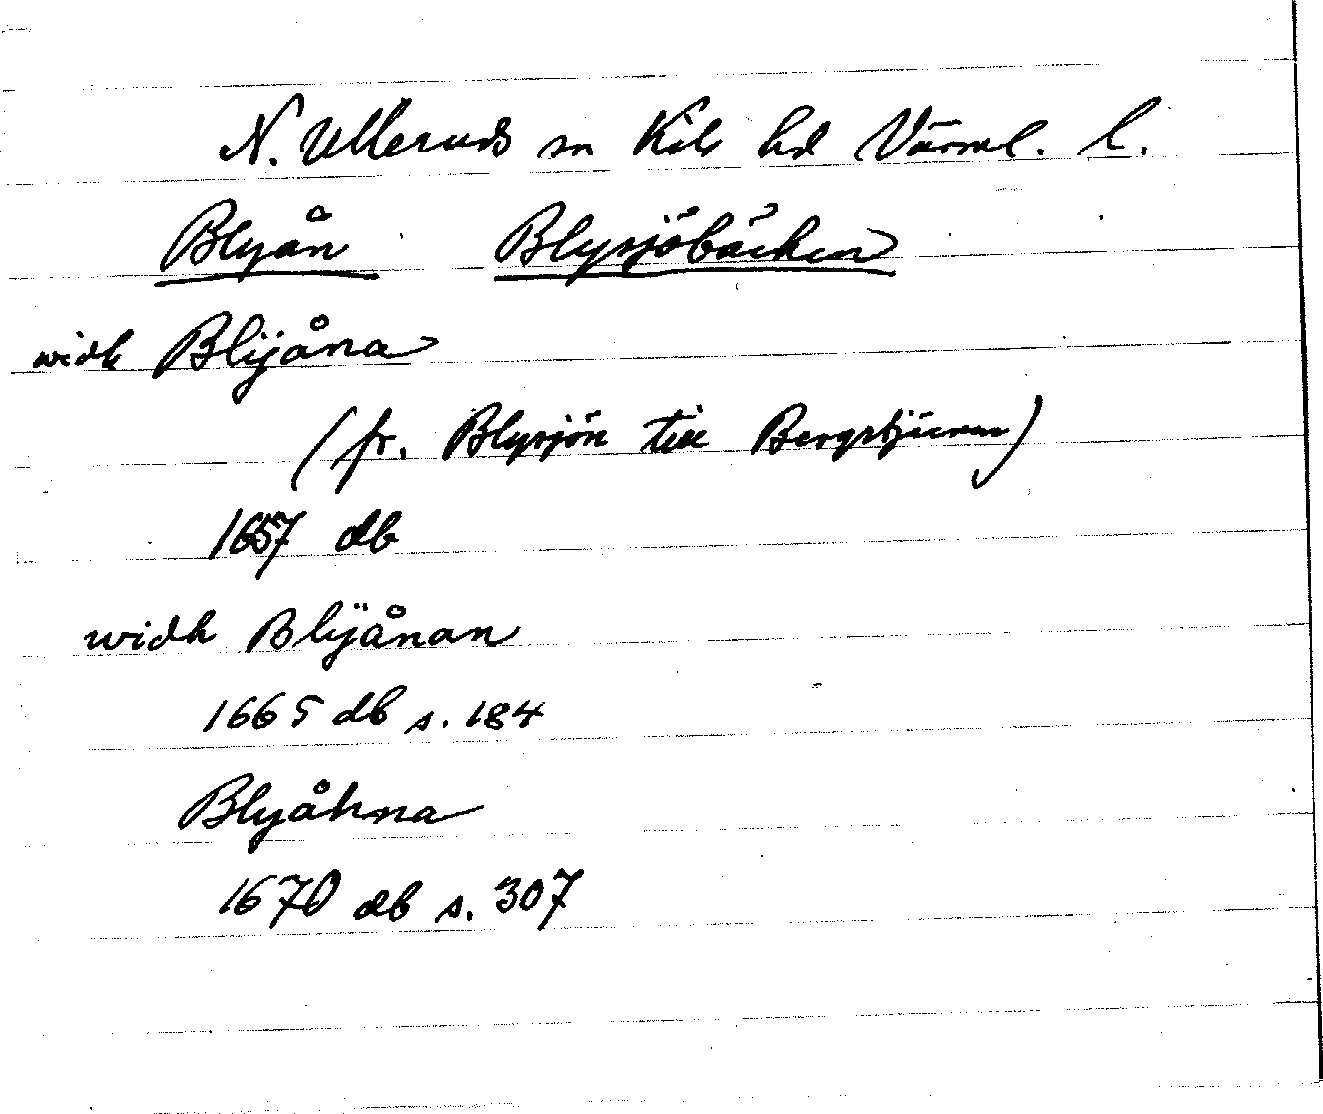 N. Ulleruds sn Kils hd Värml. l.
Blyån Blysjöbäcken
widh Blijåna
(fr. Blysjön till Bergstjärnen)
1657 db
widh Blÿånan
1665 db s. 184
Blyåhna
1670 db s. 307